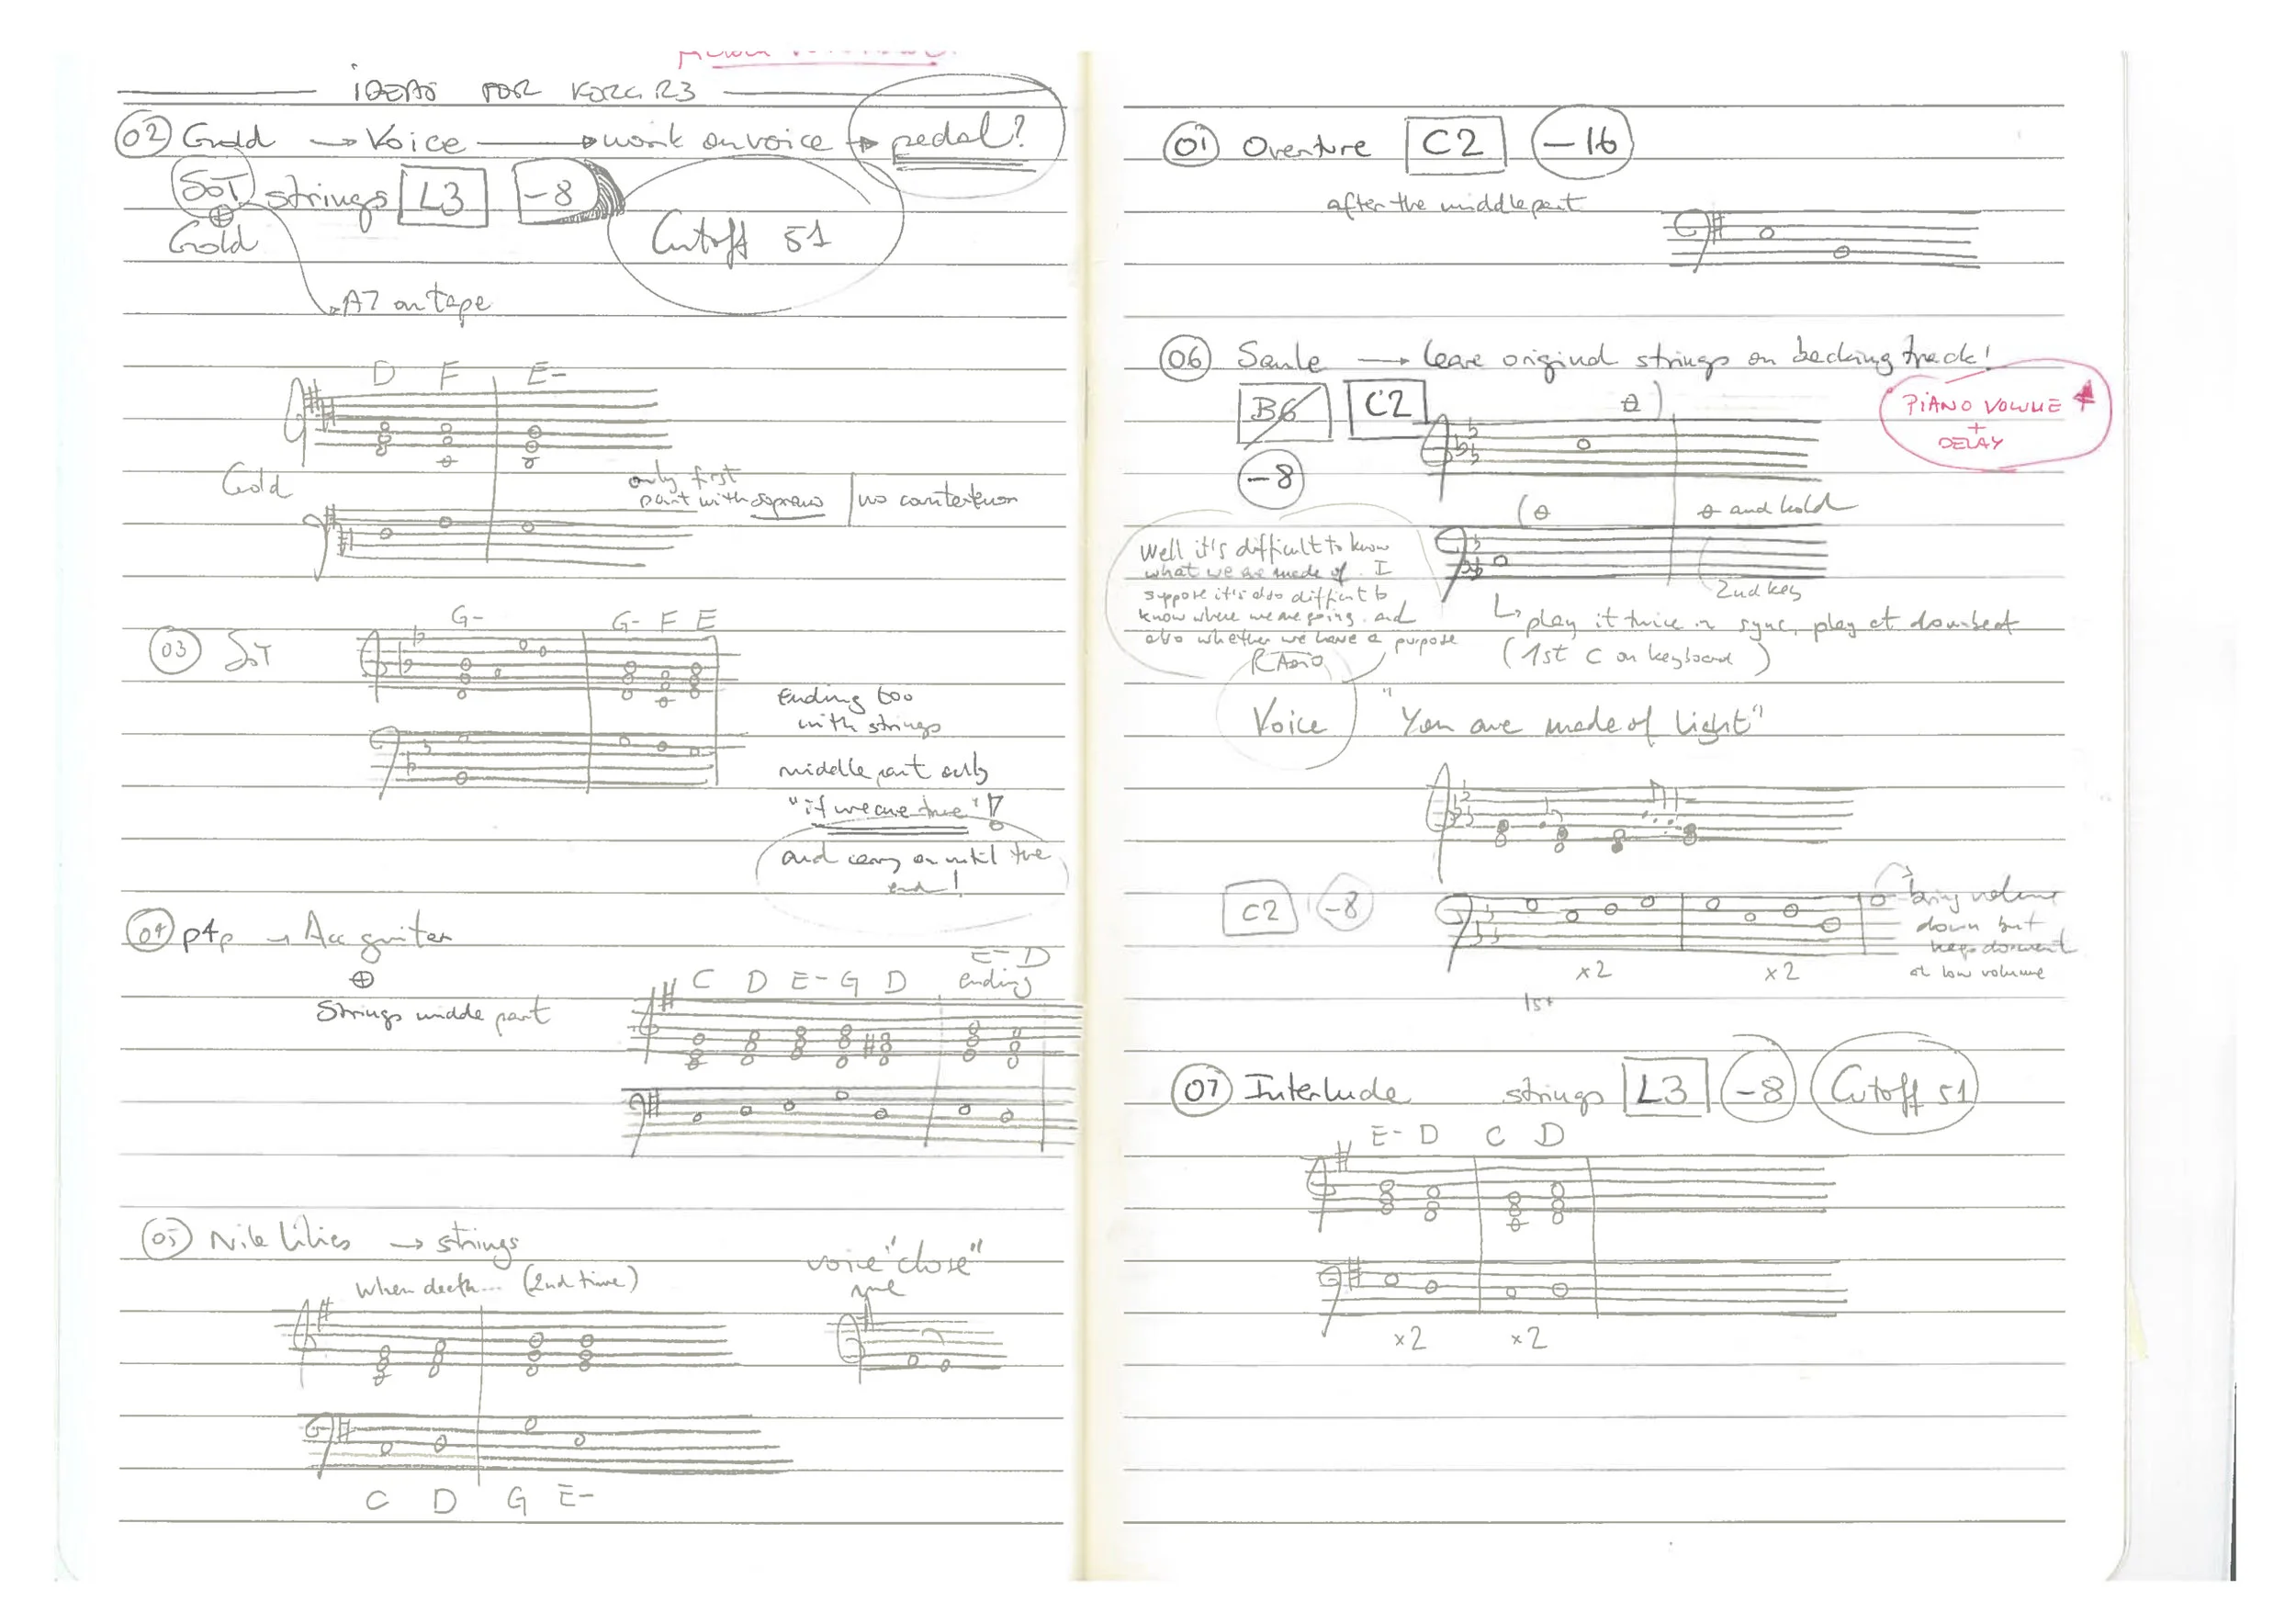 IDEAS FOR KORG R3
02 Gold → Voice → work on voice → pedal?
SOT strings L3 -8
⊕
Gold
Cutoff 51
A7 on tape
D F E-
Gold
only first
part with soprano | no countertenor
03 SOT
G- G- F E
Ending too
with strings
middle part only
"if we are true"!
and carry on until the
end!
04 p4p → Acc guitar
⊕
Strings middle part
E- D
C D E- G D ending
05 Nile Lilies → strings
When death... (2nd time)
voice "close"
C D G E-
01 Overture C2 -16
after the middle part
06 Saule → leave original strings on backing track!
B6 C2
-8
PIANO VOLUME
+
DELAY
and hold
2nd key
Well it's difficult to know
what we are made of. I
suppose it's also difficult to
know where we are going. and
also whether we have a purpose
RADIO
↳ play it twice in sync, play at downbeat
(1st C on keyboard)
Voice "You are made of light"
C2 -8
bring volume
down but
keep dormant
at low volume
x2 x2
1st
07 Interlude strings L3 -8 Cutoff 51
E- D C D
x2 x2